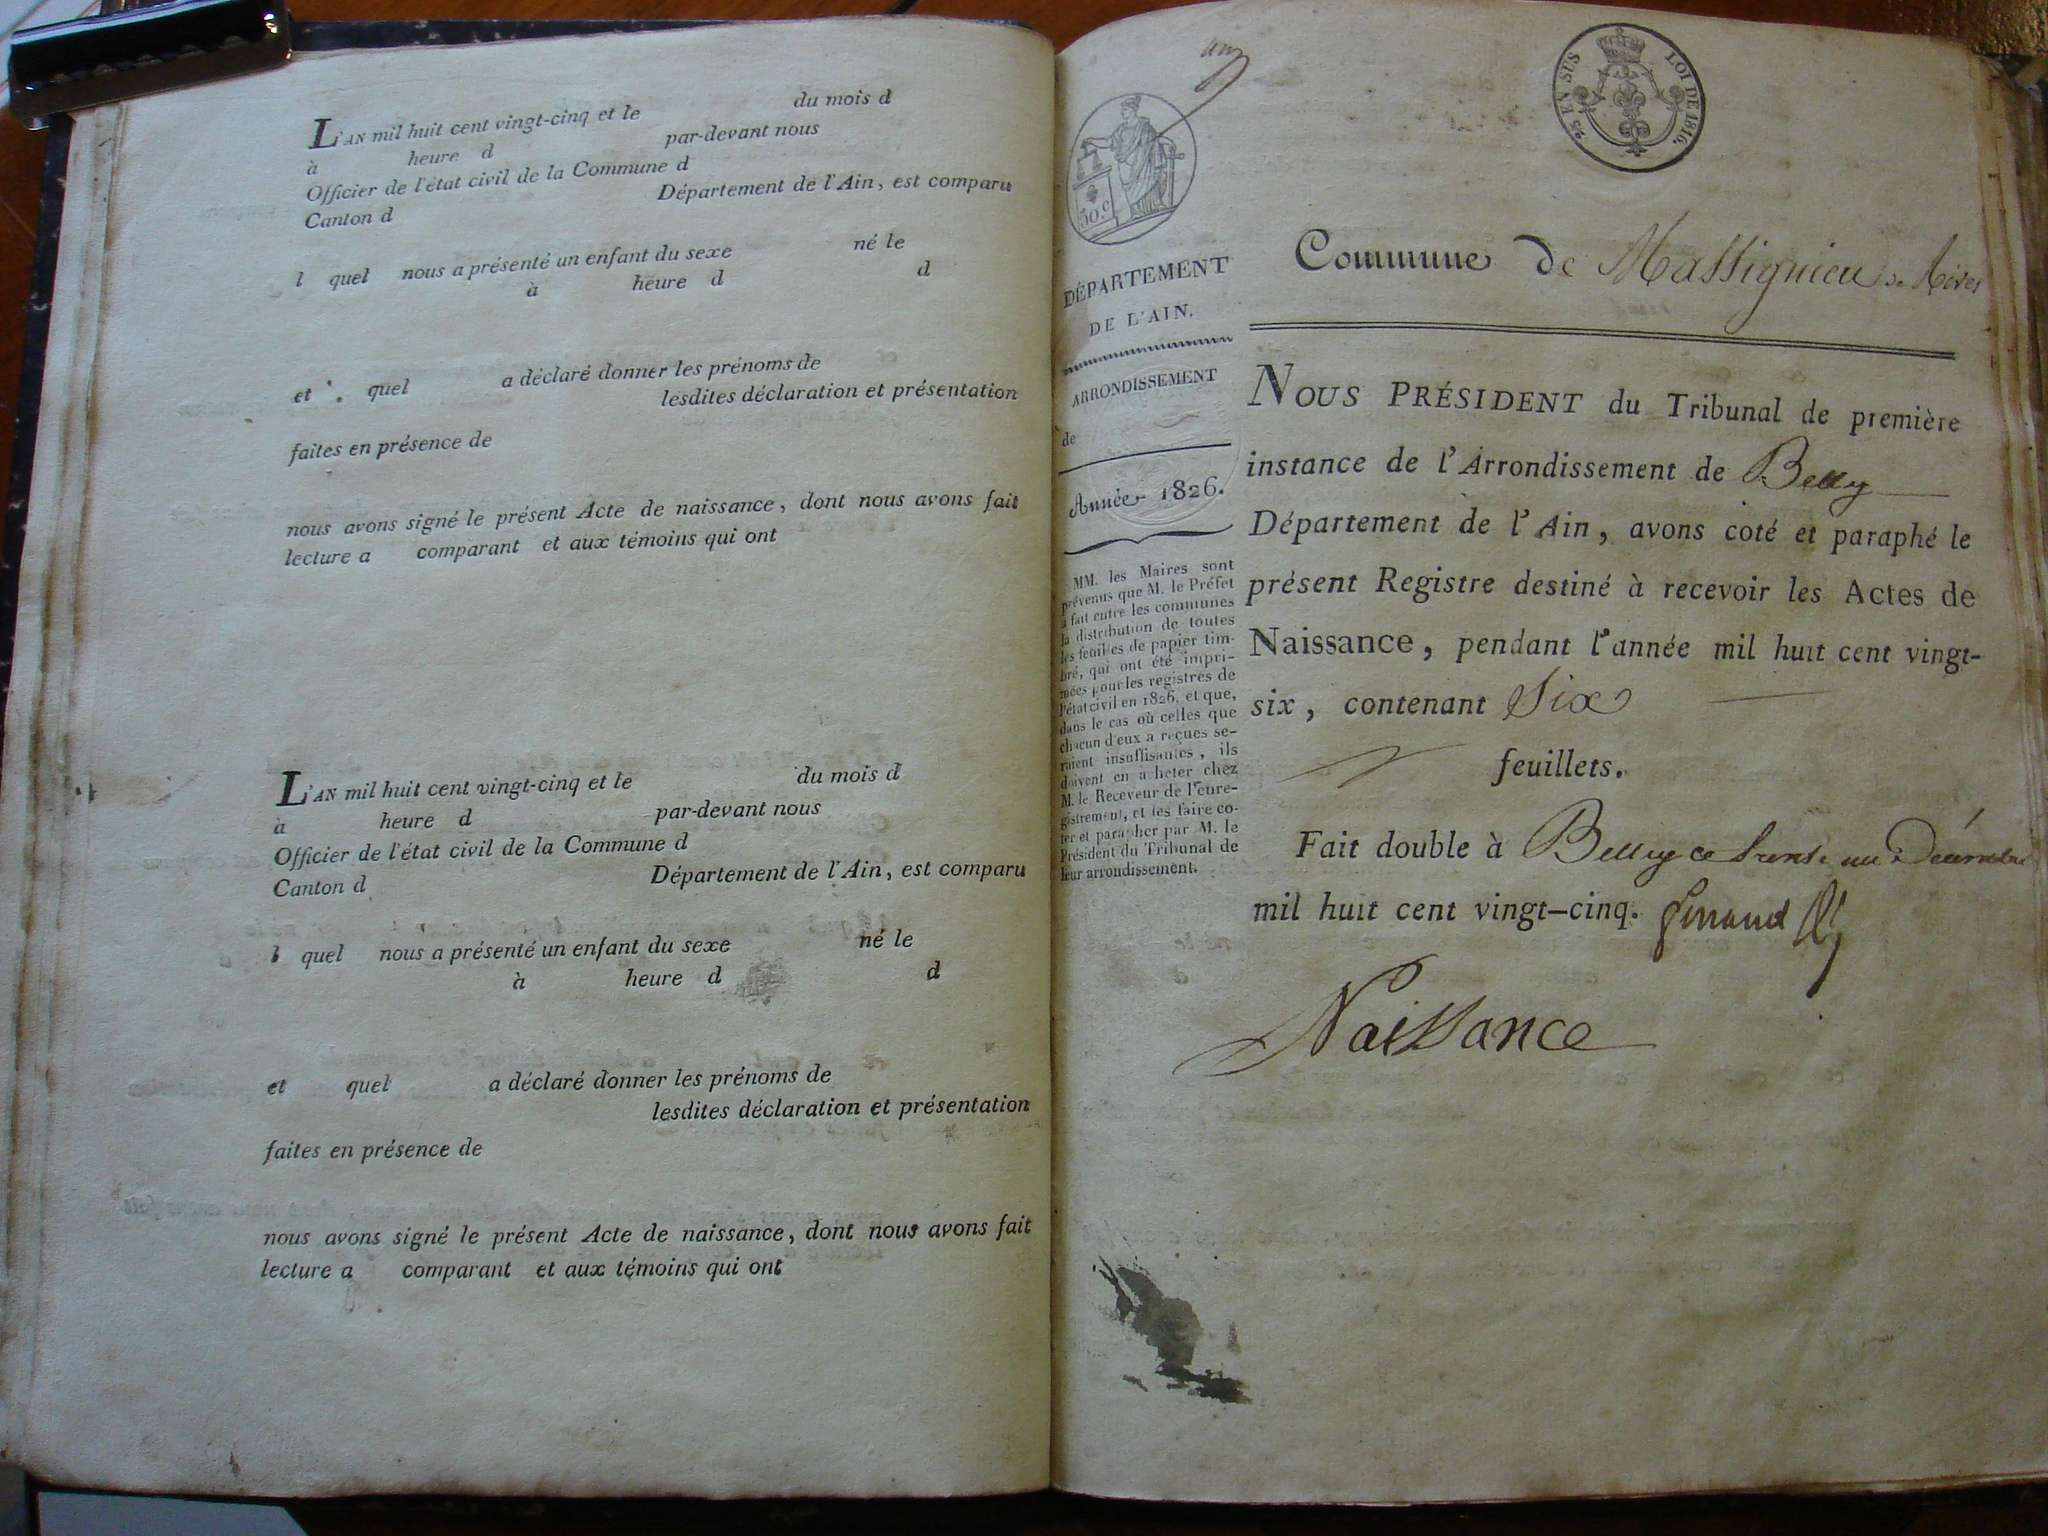 L'AN mil huit cent vingt-cinq et le du mois d
à heure d par-devant nous
Officier de l'état civil de la Commune d
Canton d Département de l'Ain, est comparu
l quel nous a présenté un enfant du sexe né le
à heure d d
et quel a déclaré donner les prénoms de
lesdites déclaration et présentation
faites en présence de
nous avons signé le présent Acte de naissance, dont nous avons fait
lecture a comparant et aux témoins qui ont
L'AN mil huit cent vingt-cinq et le du mois d
à heure d par-devant nous
Officier de l'état civil de la Commune d
Canton d Département de l'Ain, est comparu
l quel nous a présenté un enfant du sexe né le
à heure d d
et quel a déclaré donner les prénoms de
lesdites déclaration et présentation
faites en présence de
nous avons signé le présent Acte de naissance, dont nous avons fait
lecture a comparant et aux témoins qui ont
50.C
DÉPARTEMENT
DE L'AIN.
ARRONDISSEMENT
de
Année 1826.
MM. les Maires sont
prévenus que M. le Préfet
a fait entre les communes
la distribution de toutes
les feuilles de papier tim-
bré, qui ont été impri-
mées pour les registres de
l'état civil en 1826, et que,
dans le cas où celles que
chacun d'eux a reçues se-
raient insuffisantes, ils
doivent en acheter chez
M. le Receveur de l'enre-
gistrement, et les faire co-
ter et parapher par M. le
Président du Tribunal de
leur arrondissement.
25 EN SUS LOI DE 1816.
Commune de Massignieu de Rives
NOUS PRÉSIDENT du Tribunal de première
instance de l'Arrondissement de Belley
Département de l'Ain, avons coté et paraphé le
présent Registre destiné à recevoir les Actes de
Naissance, pendant l'année mil huit cent vingt-
six, contenant Six
feuillets.
Fait double à Belley ce trente un Décembre
mil huit cent vingt-cinq.
Naissance